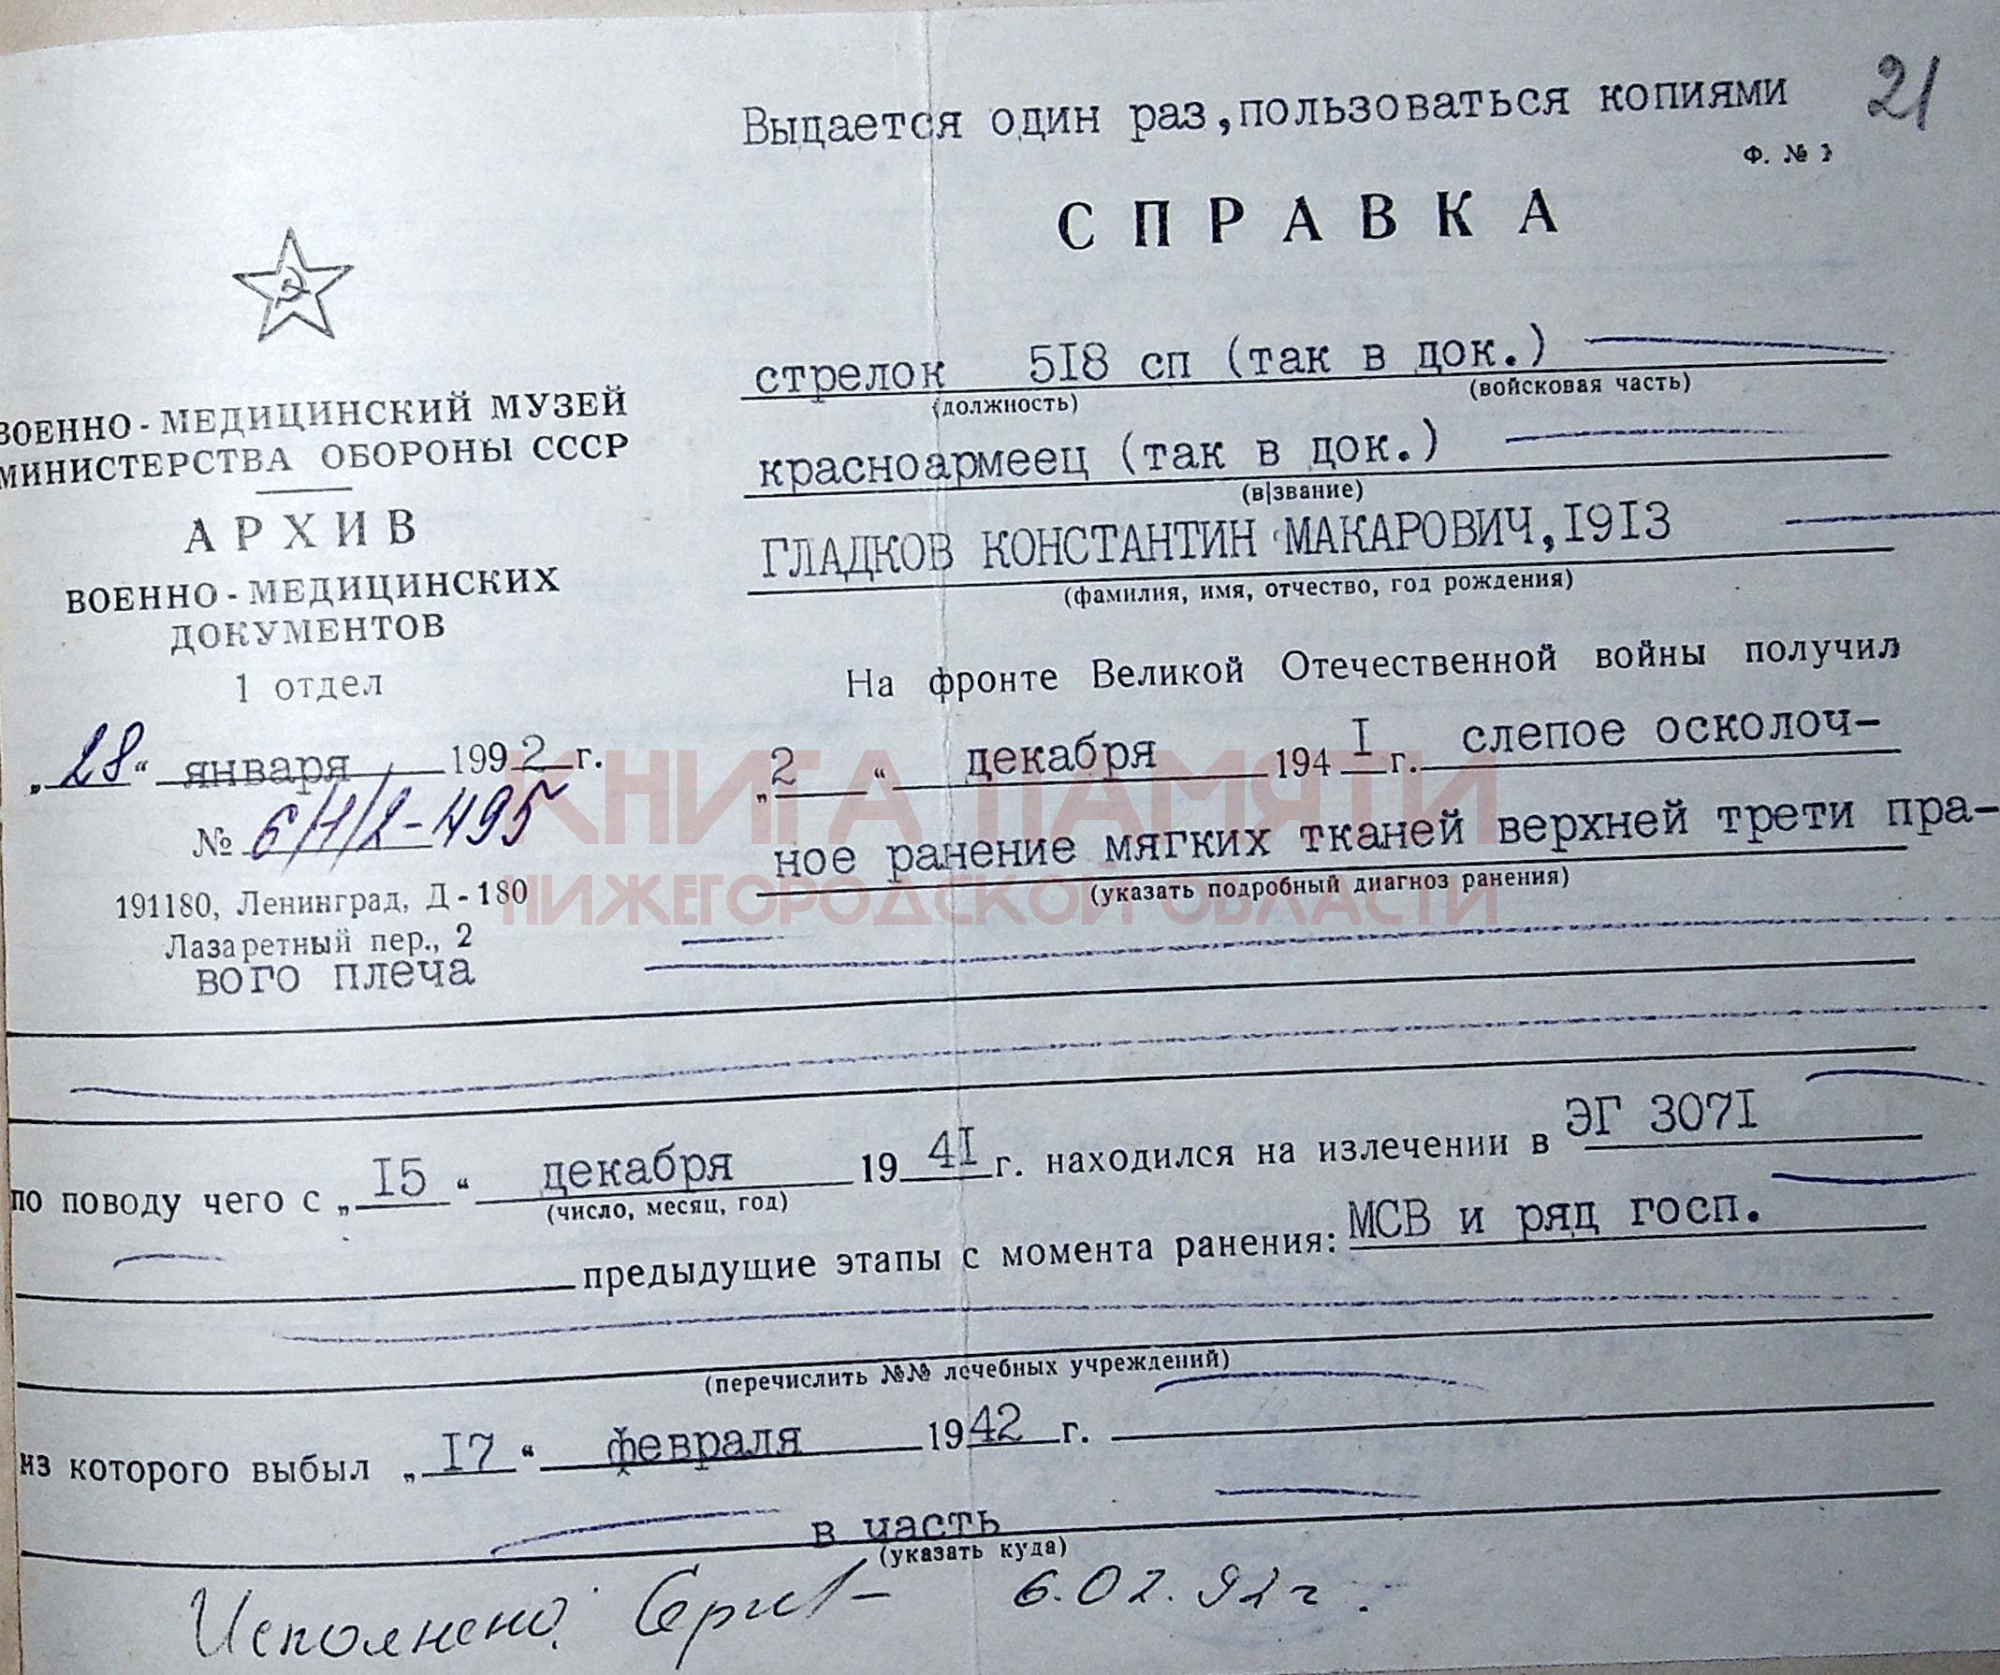 Выдается один раз, пользоваться копиями
21
Ф. № 1
СПРАВКА
ВОЕННО-МЕДИЦИНСКИЙ МУЗЕЙ
МИНИСТЕРСТВА ОБОРОНЫ СССР
АРХИВ
ВОЕННО-МЕДИЦИНСКИХ
ДОКУМЕНТОВ
1 отдел
„28“ января 1992 г.
№ 6/1/2-495
191180, Ленинград, Д-180
Лазаретный пер., 2
стрелок 518 сп (так в док.)
(должность) (войсковая часть)
красноармеец (так в док.)
(в/звание)
ГЛАДКОВ КОНСТАНТИН МАКАРОВИЧ, 1913
(фамилия, имя, отчество, год рождения)
На фронте Великой Отечественной войны получил
„2“ декабря 1941 г. слепое осколоч-
ное ранение мягких тканей верхней трети пра-
(указать подробный диагноз ранения)
вого плеча
КНИГА ПАМЯТИ
НИЖЕГОРОДСКОЙ ОБЛАСТИ
по поводу чего с „15“ декабря 1941 г. находился на излечении в ЭГ 3071
(число, месяц, год)
предыдущие этапы с момента ранения: МСВ и ряд госп.
(перечислить №№ лечебных учреждений)
из которого выбыл „17“ февраля 1942 г.
в часть
(указать куда)
Исполнено. 6.02.92 г.